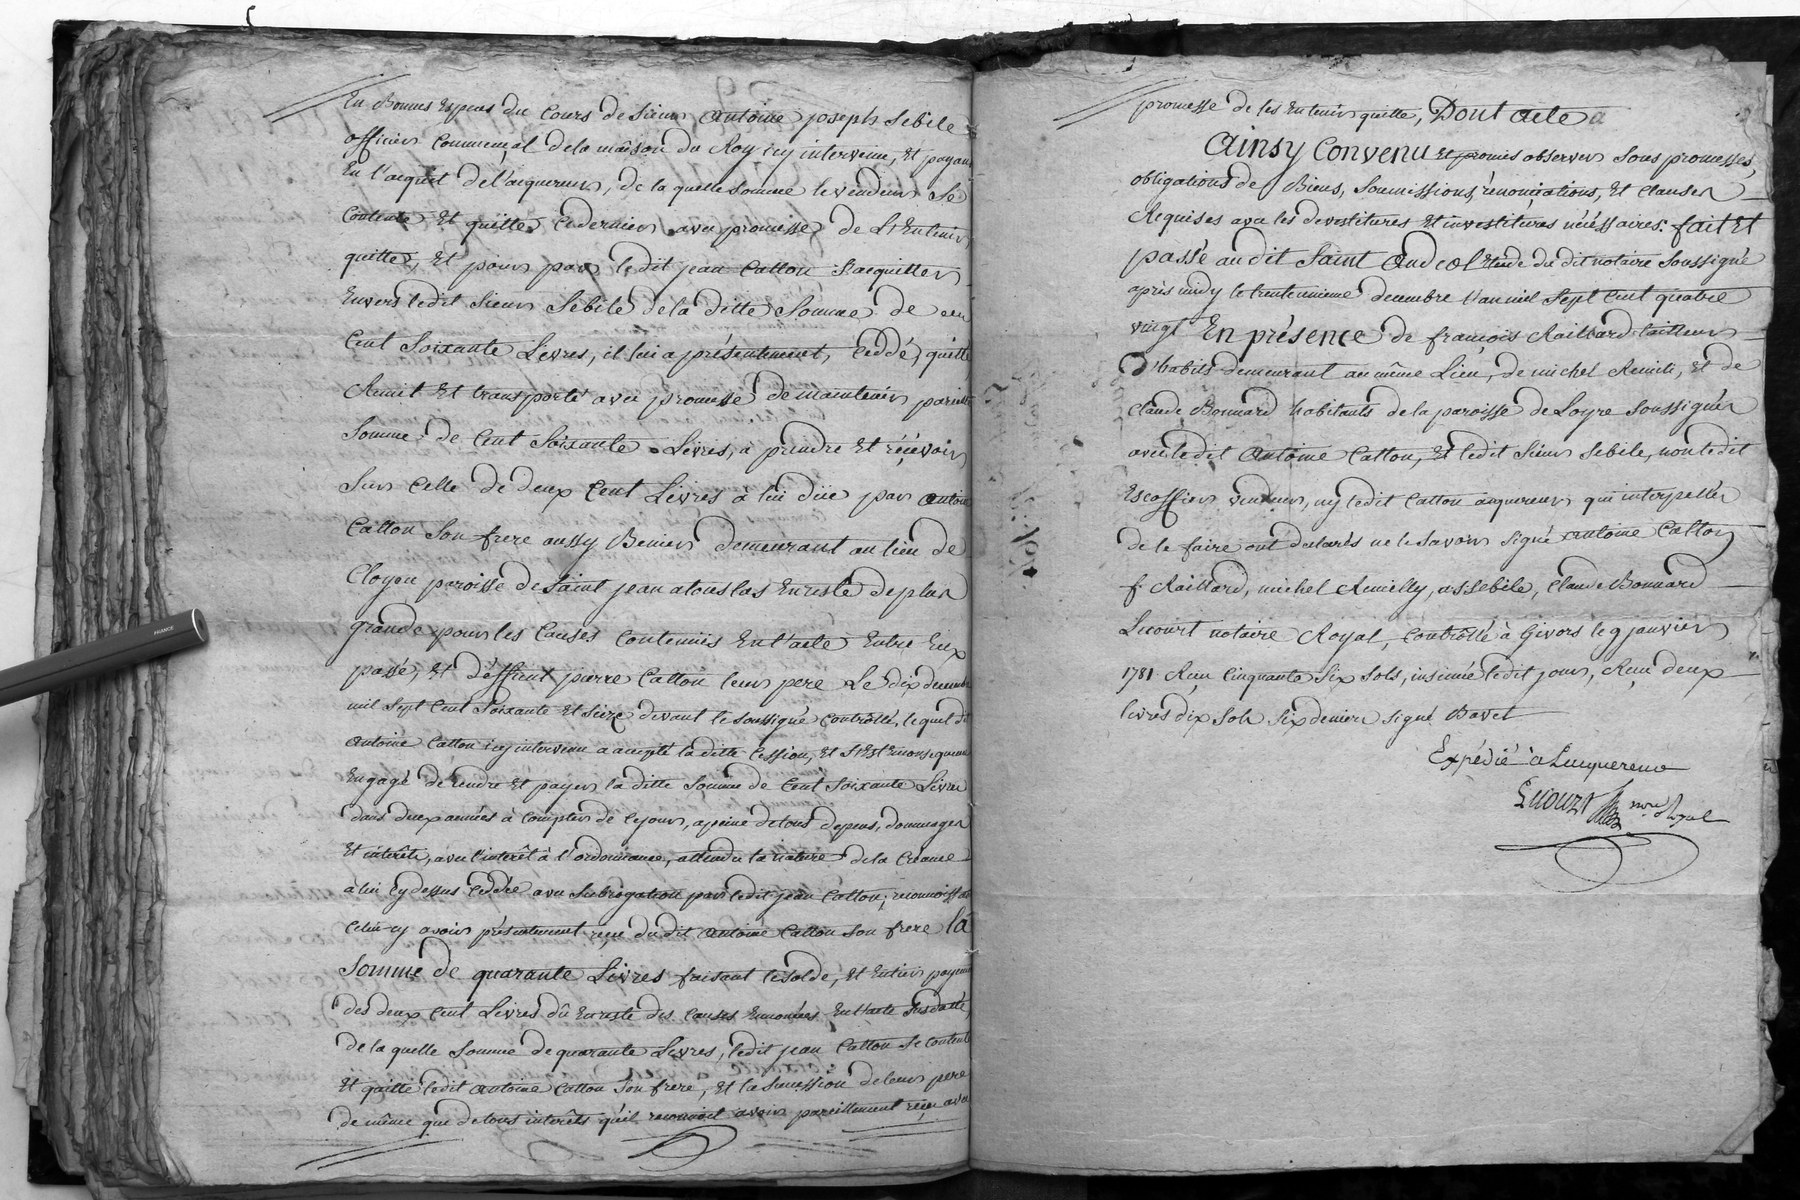 En Bonnes Especes du Cours de Sieur Antoine joseph Sebile
officier Commençal de la maison du Roy icy intervenu, Et payant
En l'acquit de l'acquereur, de la quelle somme le vendeur Se
Contente Et quitte ce dernier avec promesse de L'Entenir
quitte, Et pour par ledit jean Catton S'acquitter
Envers ledit Sieur Sebile de la ditte Somme de
Cent Soixante Livres, il lui a présentement, Ceddé, quitté
Remit Et transporté avec promesse de maintenir pareille
Somme de Cent Soixante Livres, a prendre Et récevoir
Sur Celle de deux Cent Livres à lui düe par antoine
Catton Son frere aussy Benier demeurant au lieu de
Cloyon paroisse de Saint jean atouslas En reste de plus
grande pour les Causes Contenües En l'acte Entre Eux
passé, Et d'éffunt pierre Catton leur pere Le dix decembre
mil Sept Cent Soixante Et Seize devant le Soussigné Controllé, lequel dt
Antoine Catton icy intervenu a accepté la ditte Cession, Et S'Est Enconsequence
Engagé de rendre Et payer la ditte Somme de Cent Soixante Livres
dans deux années à Compter de ce jour, a peine de tous depens, dommages
Et intérêts, avec l'interêt à l'ordonnance, attendu la nature de la Créance
à lui Cy dessus Ceddée avec Subrogation par ledit jean Catton; reconnoissant
Celui-cy avoir présentement reçu du dit Antoine Catton Son frere la
Somme de quarante Livres faisant le Solde, Et Entier payement
des deux Cent Livres dû En reste des Causes Enoncées En l'acte Susdatté,
de la quelle Somme de quarante Livres, ledit jean Catton Se Contente
Et quitte ledit Antoine Catton Son frere, Et la Succession de leur pere
de même que de tous interêts qu'il reconnoit avoir pareillement reçu avec
promesse de les Entenir quitte, Dont acte
Ainsy Convenu Et promis observer Sous promesses,
obligations de Biens, Soumissions, rénonciations, Et clauses
Requises avec les devestitures Et investitures nécéssaires. fait Et
passé audit Saint Andeol Etude du dit notaire Soussigné
après midy le trente unieme decembre l'an mil Sept Cent quatre
vingt En présence de françois Raillard tailleur
d'habits demeurant au même Lieu, de michel Remili, Et de
Claude Bonnard habitants de la paroisse de Loyre Soussignés
avec ledit Antoine Catton, Et ledit Sieur Sebile, non ledit
Escoffier vendeur, ny ledit Catton acquereur qui interpellés
de le faire ont declarés ne le Savoir Signé Antoine Catton
f Raillard, michel Remilly, as Sebile, Claude Bonnard
Lecourt notaire Royal, Controllé à Givors le 9 janvier
1781 Reçu Cinquante Six Sols, insinué ledit jour, Reçu deux
livres dix Sols Six deniers Signé Bavet
Expédié à L'acquereur
Lecourt nre Royal
FRANCE